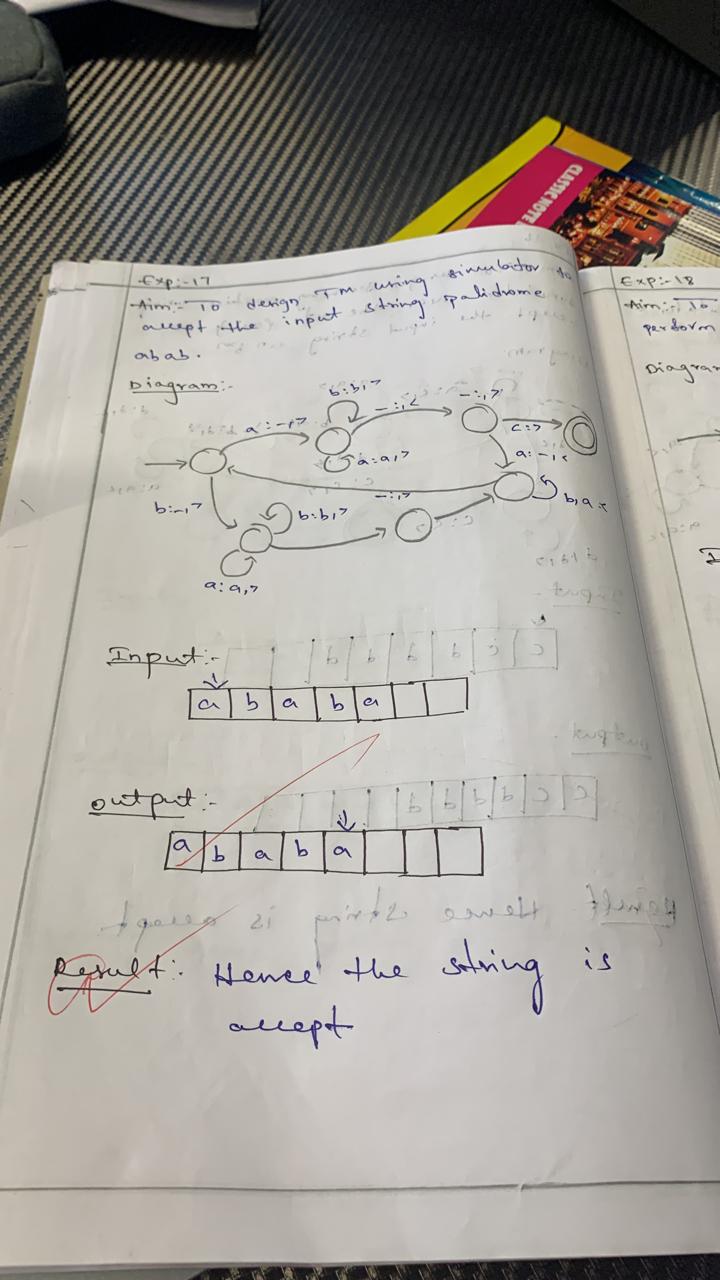 CLASSIC NOTE
Exp:-17
Aim:- To design TM using simulator to
accept the input string palidrome
abab.
Diagram:-
b:b,>
a:-,>
-:,<
-:,>
c:>
a:a,>
a:-,<
b:-,>
b:b,>
-:,>
b,a:<
a:a,>
Input:-
a b a b a
output:-
a b a b a
Result:- Hence the string is
accept
Exp:-18
Aim:- To
perform
Diagram